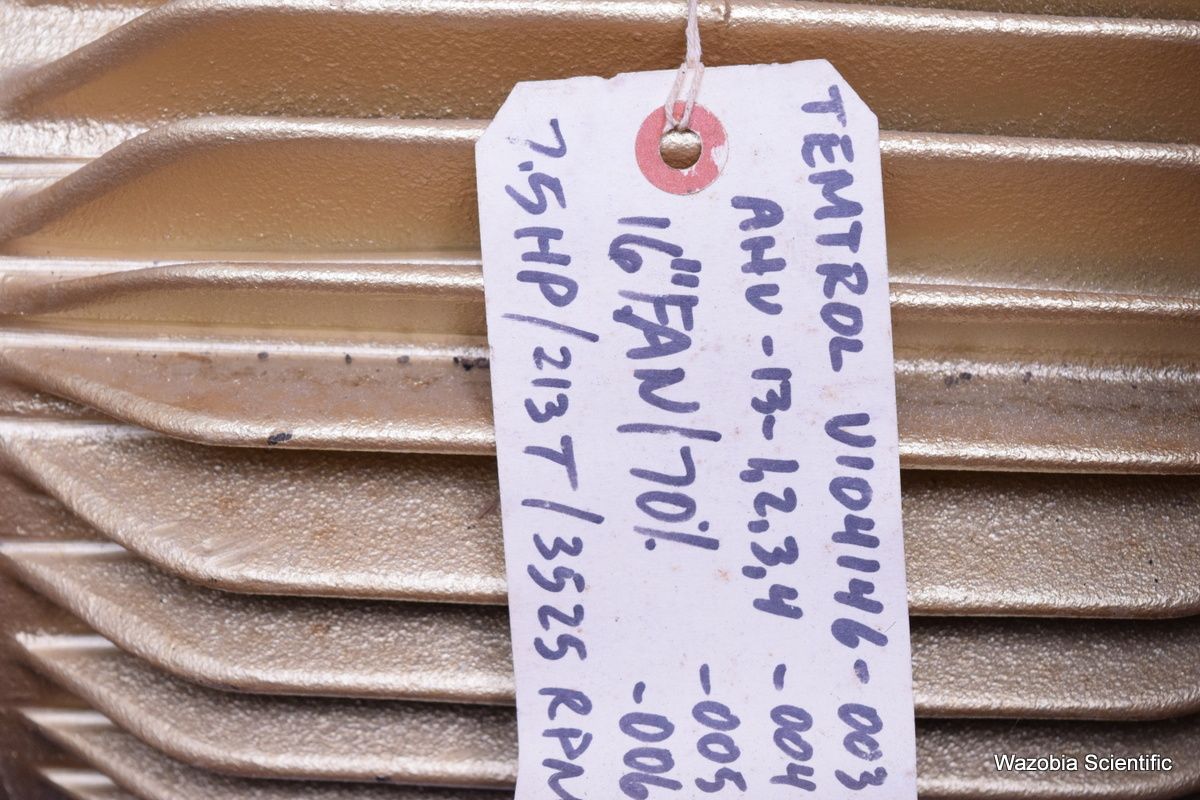 TEMTROL V104146-003
AHU-13-1,2,3,4 -004
16" FAN/70% -005
-006
7.5HP/213T/3525 RPM
Wazobia Scientific